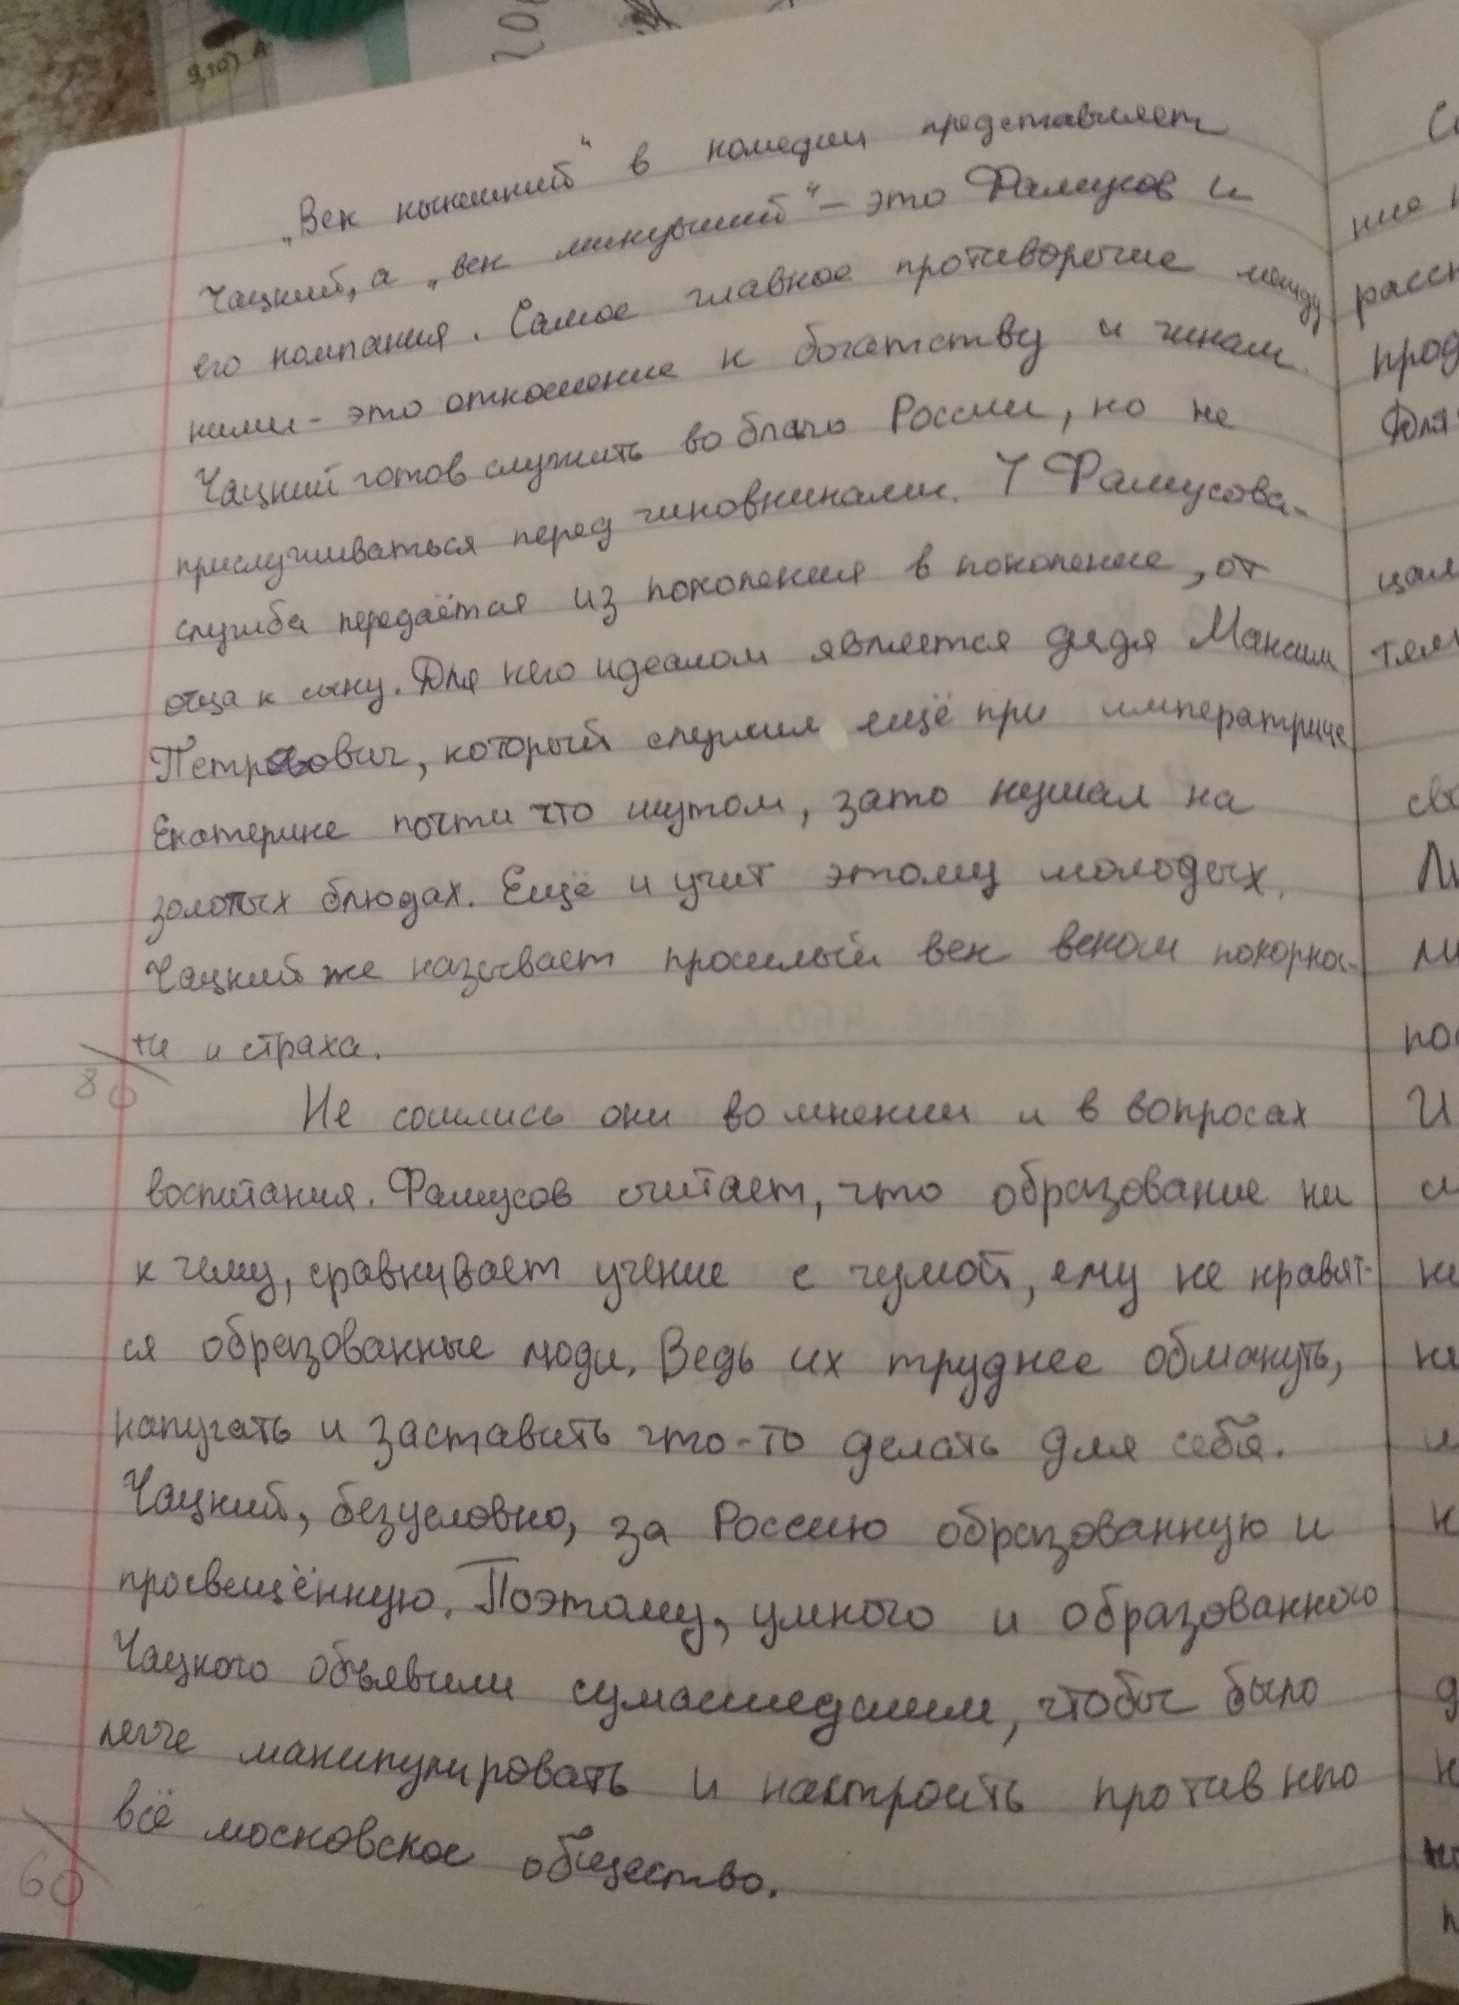 9,10) А
20
„Век нынешний“ в комедии представляет
Чацкий, а „век минувший“ – это Фамусов и
его компания. Самое главное противоречие между
ними – это отношение к богатству и чинам.
Чацкий готов служить во благо России, но не
прислуживаться перед чиновниками. У Фамусова-
служба передаётся из поколения в поколение, от
отца к сыну. Для него идеалом является дядя Максим
Петрович, который служил ещё при императрице
Екатерине почти что шутом, зато кушал на
золотых блюдах. Ещё и учит этому молодых.
Чацкий же называет прошлый век веком покорнос-
ти и страха.
80
Не сошлись они во мнении и в вопросах
воспитания. Фамусов считает, что образование ни
к чему, сравнивает учение с чумой, ему не нравят-
ся образованные люди. Ведь их труднее обмануть,
напугать и заставить что-то делать для себя.
Чацкий, безусловно, за Россию образованную и
просвещённую. Поэтому, умного и образованного
Чацкого объявили сумасшедшим, чтобы было
легче манипулировать и настроить против него
всё московское общество.
60
прод
Для